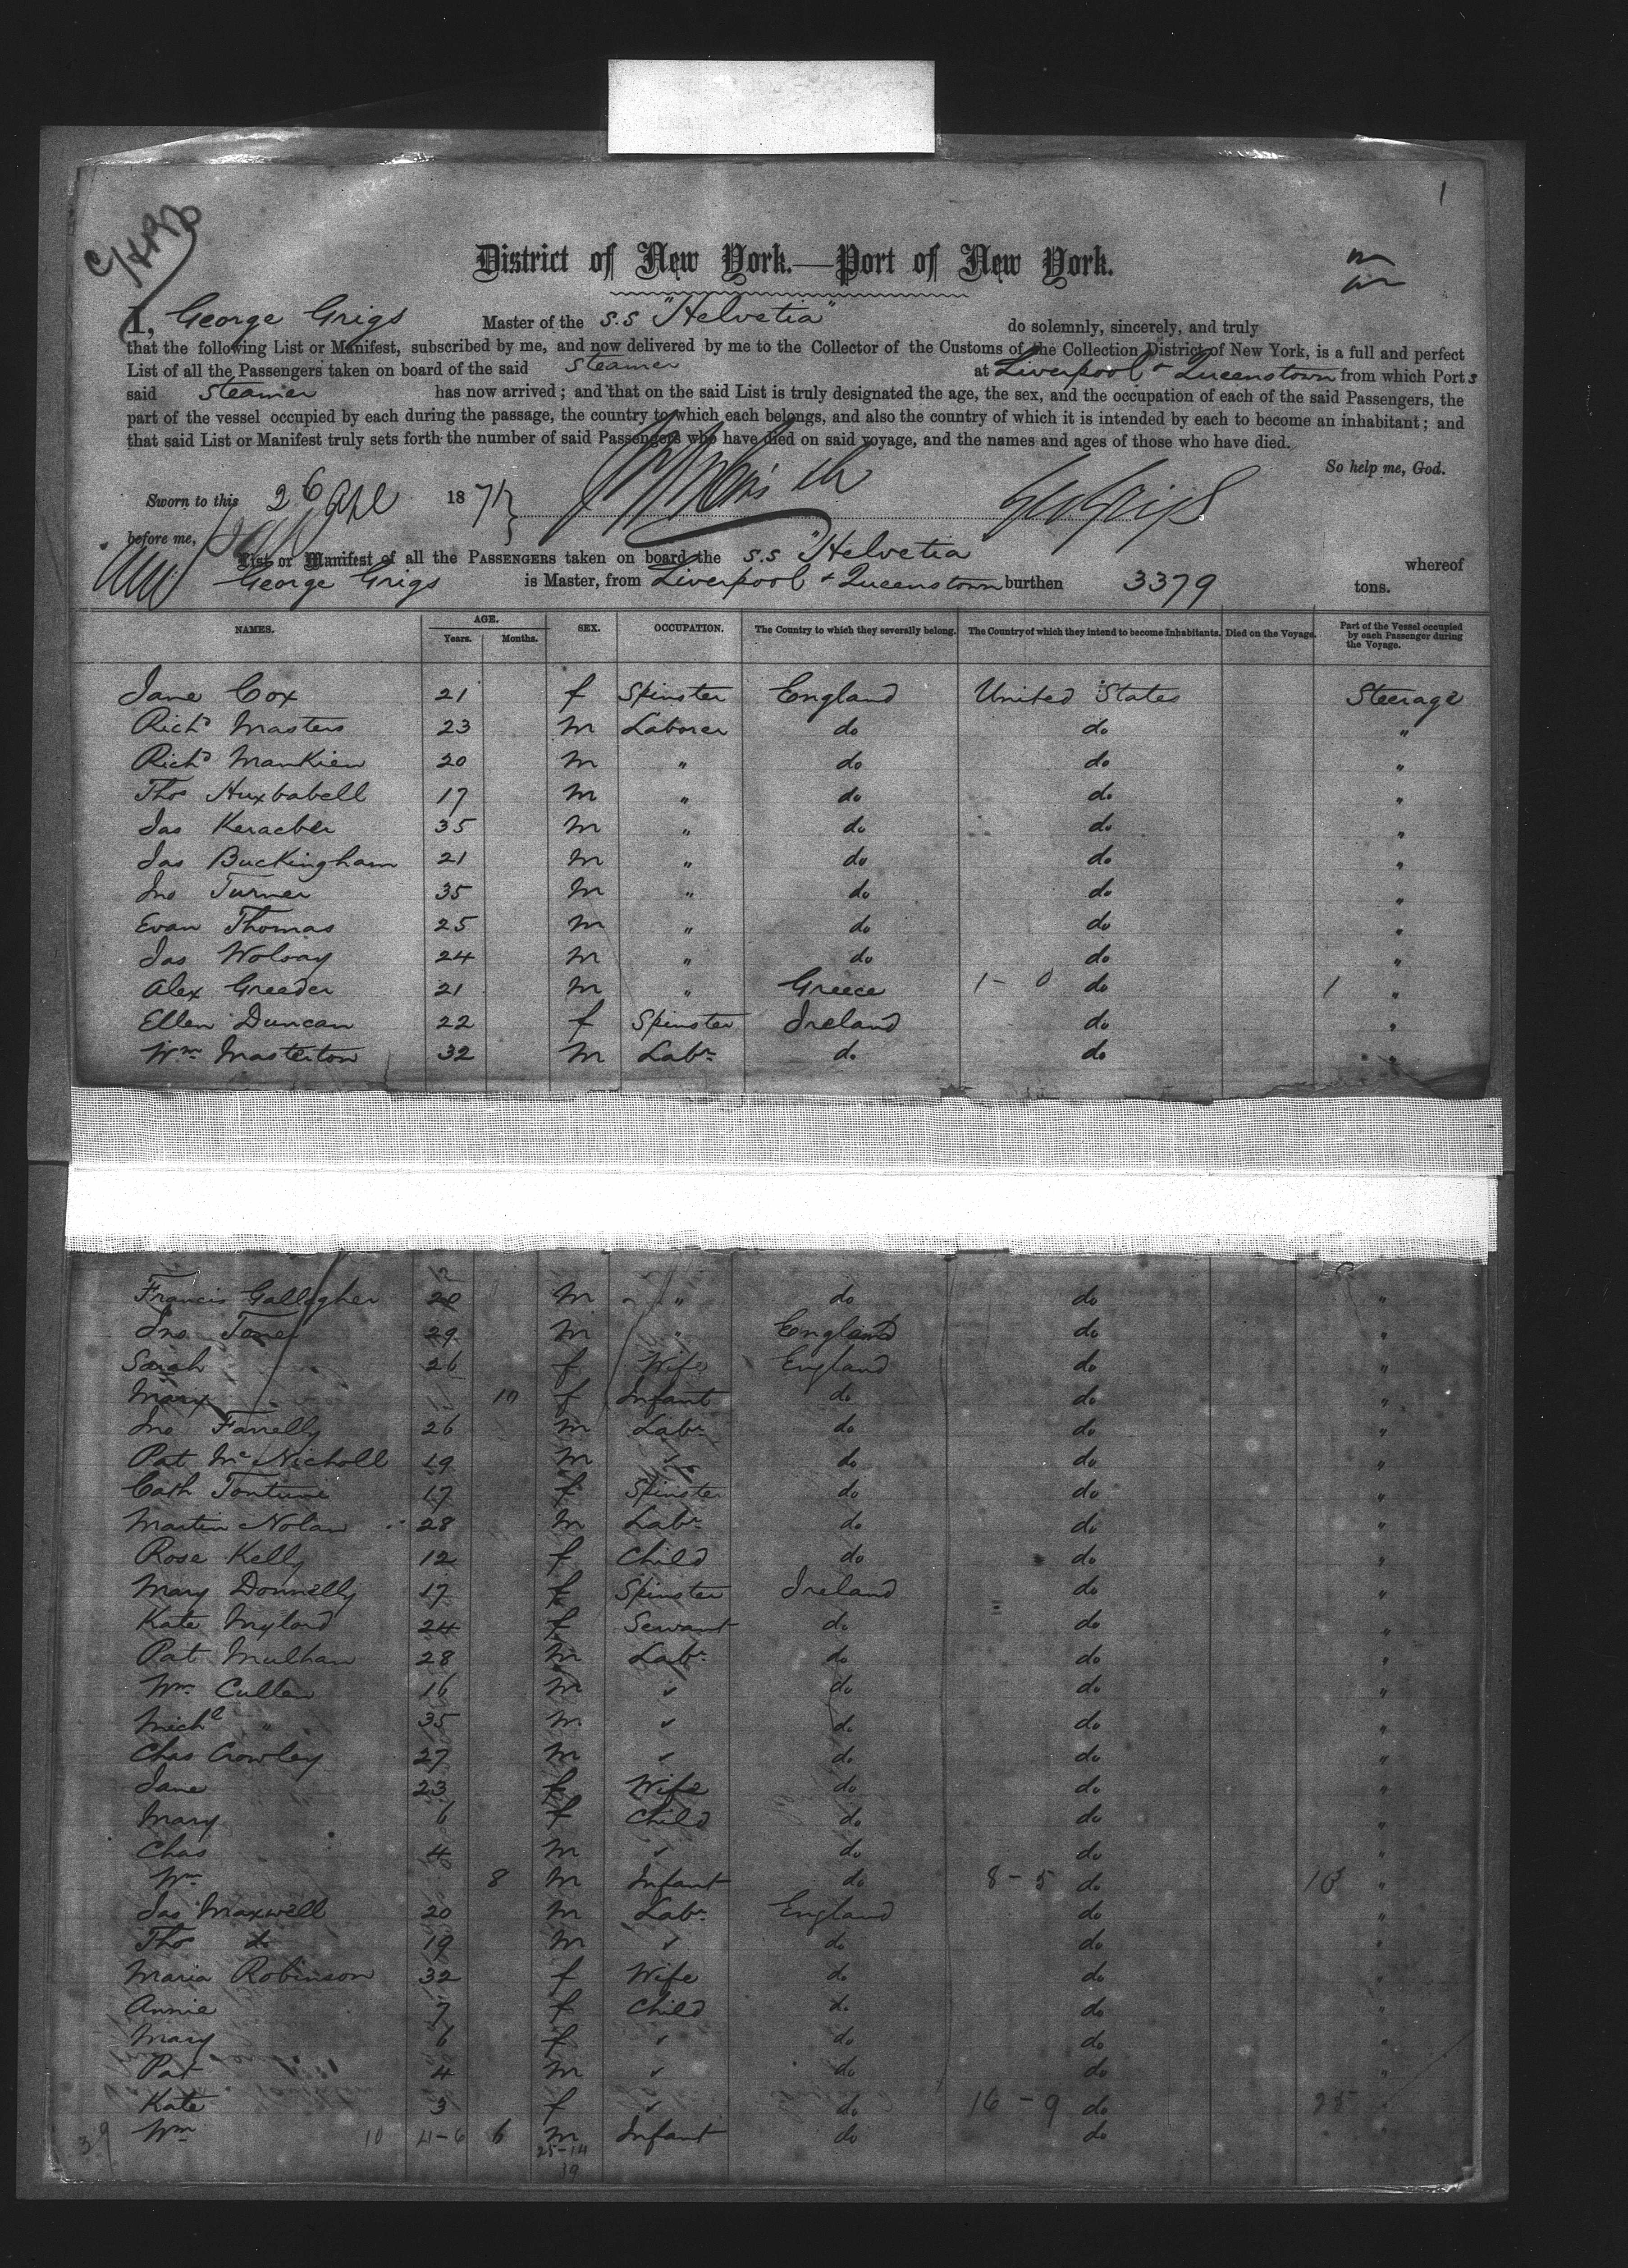 1
District of New York.—Port of New York.
I, George Grigs Master of the S.S "Helvetia" do solemnly, sincerely, and truly
that the following List or Manifest, subscribed by me, and now delivered by me to the Collector of the Customs of the Collection District of New York, is a full and perfect
List of all the Passengers taken on board of the said Steamer at Liverpool & Queenstown from which Ports
said Steamer has now arrived; and that on the said List is truly designated the age, the sex, and the occupation of each of the said Passengers, the
part of the vessel occupied by each during the passage, the country to which each belongs, and also the country of which it is intended by each to become an inhabitant; and
that said List or Manifest truly sets forth the number of said Passengers who have died on said voyage, and the names and ages of those who have died.
So help me, God.
Sworn to this 26 Apl 1871
before me,
List or Manifest of all the PASSENGERS taken on board the S.S "Helvetia" whereof
George Grigs is Master, from Liverpool & Queenstown burthen 3379 tons.
NAMES. AGE. Years. Months. SEX. OCCUPATION. The Country to which they severally belong. The Country of which they intend to become Inhabitants. Died on the Voyage. Part of the Vessel occupied by each Passenger during the Voyage.
Jane Cox 21 f Spinster England United States Steerage
Richd Masters 23 M Laborer do do "
Richd Mankien 20 M " do do "
Thos Huxbabell 17 M " do do "
Jas Keracher 35 M " do do "
Jas Buckingham 21 M " do do "
Jno Turner 35 M " do do "
Evan Thomas 25 M " do do "
Jas 24 M " do do "
Alex Greeder 21 M " Greece 1-0 do 1 "
Ellen Duncan 22 f Spinster Ireland do "
Wm Masterton 32 M Labr do do "
Francis Gallagher 20 M " do do "
Jno 29 M " England do "
Sarah 26 f Wife England do "
Mary 10 f Infant do do "
Jno Farrelly 26 M Labr do do "
Pat McNicholl 19 M do do "
Cath 17 f Spinster do do "
Martin Nolan 28 M Labr do do "
Rose Kelly 12 f Child do do "
Mary Donnelly 17 f Spinster Ireland do "
Kate Mylord 24 f Servant do do "
Pat Mulhan 28 M Labr do do "
Wm Cullen 16 M " do do "
Michl " 35 M " do do "
Chas Crowley 27 M " do do "
Jane 23 f Wife do do "
Mary 6 f Child do do "
Chas 4 M " do do "
Wm 8 M Infant do 8-5 do "
Jas Maxwell 20 M Labr England do "
Thos do 19 M " do do "
Maria Robinson 32 f Wife do do "
Annie 7 f Child do do "
Mary 6 f " do do "
Pat 4 M " do do "
Kate 3 f " do 16-9 do 25 "
39 Wm 10 11-6 6 M Infant do do
25-14
19